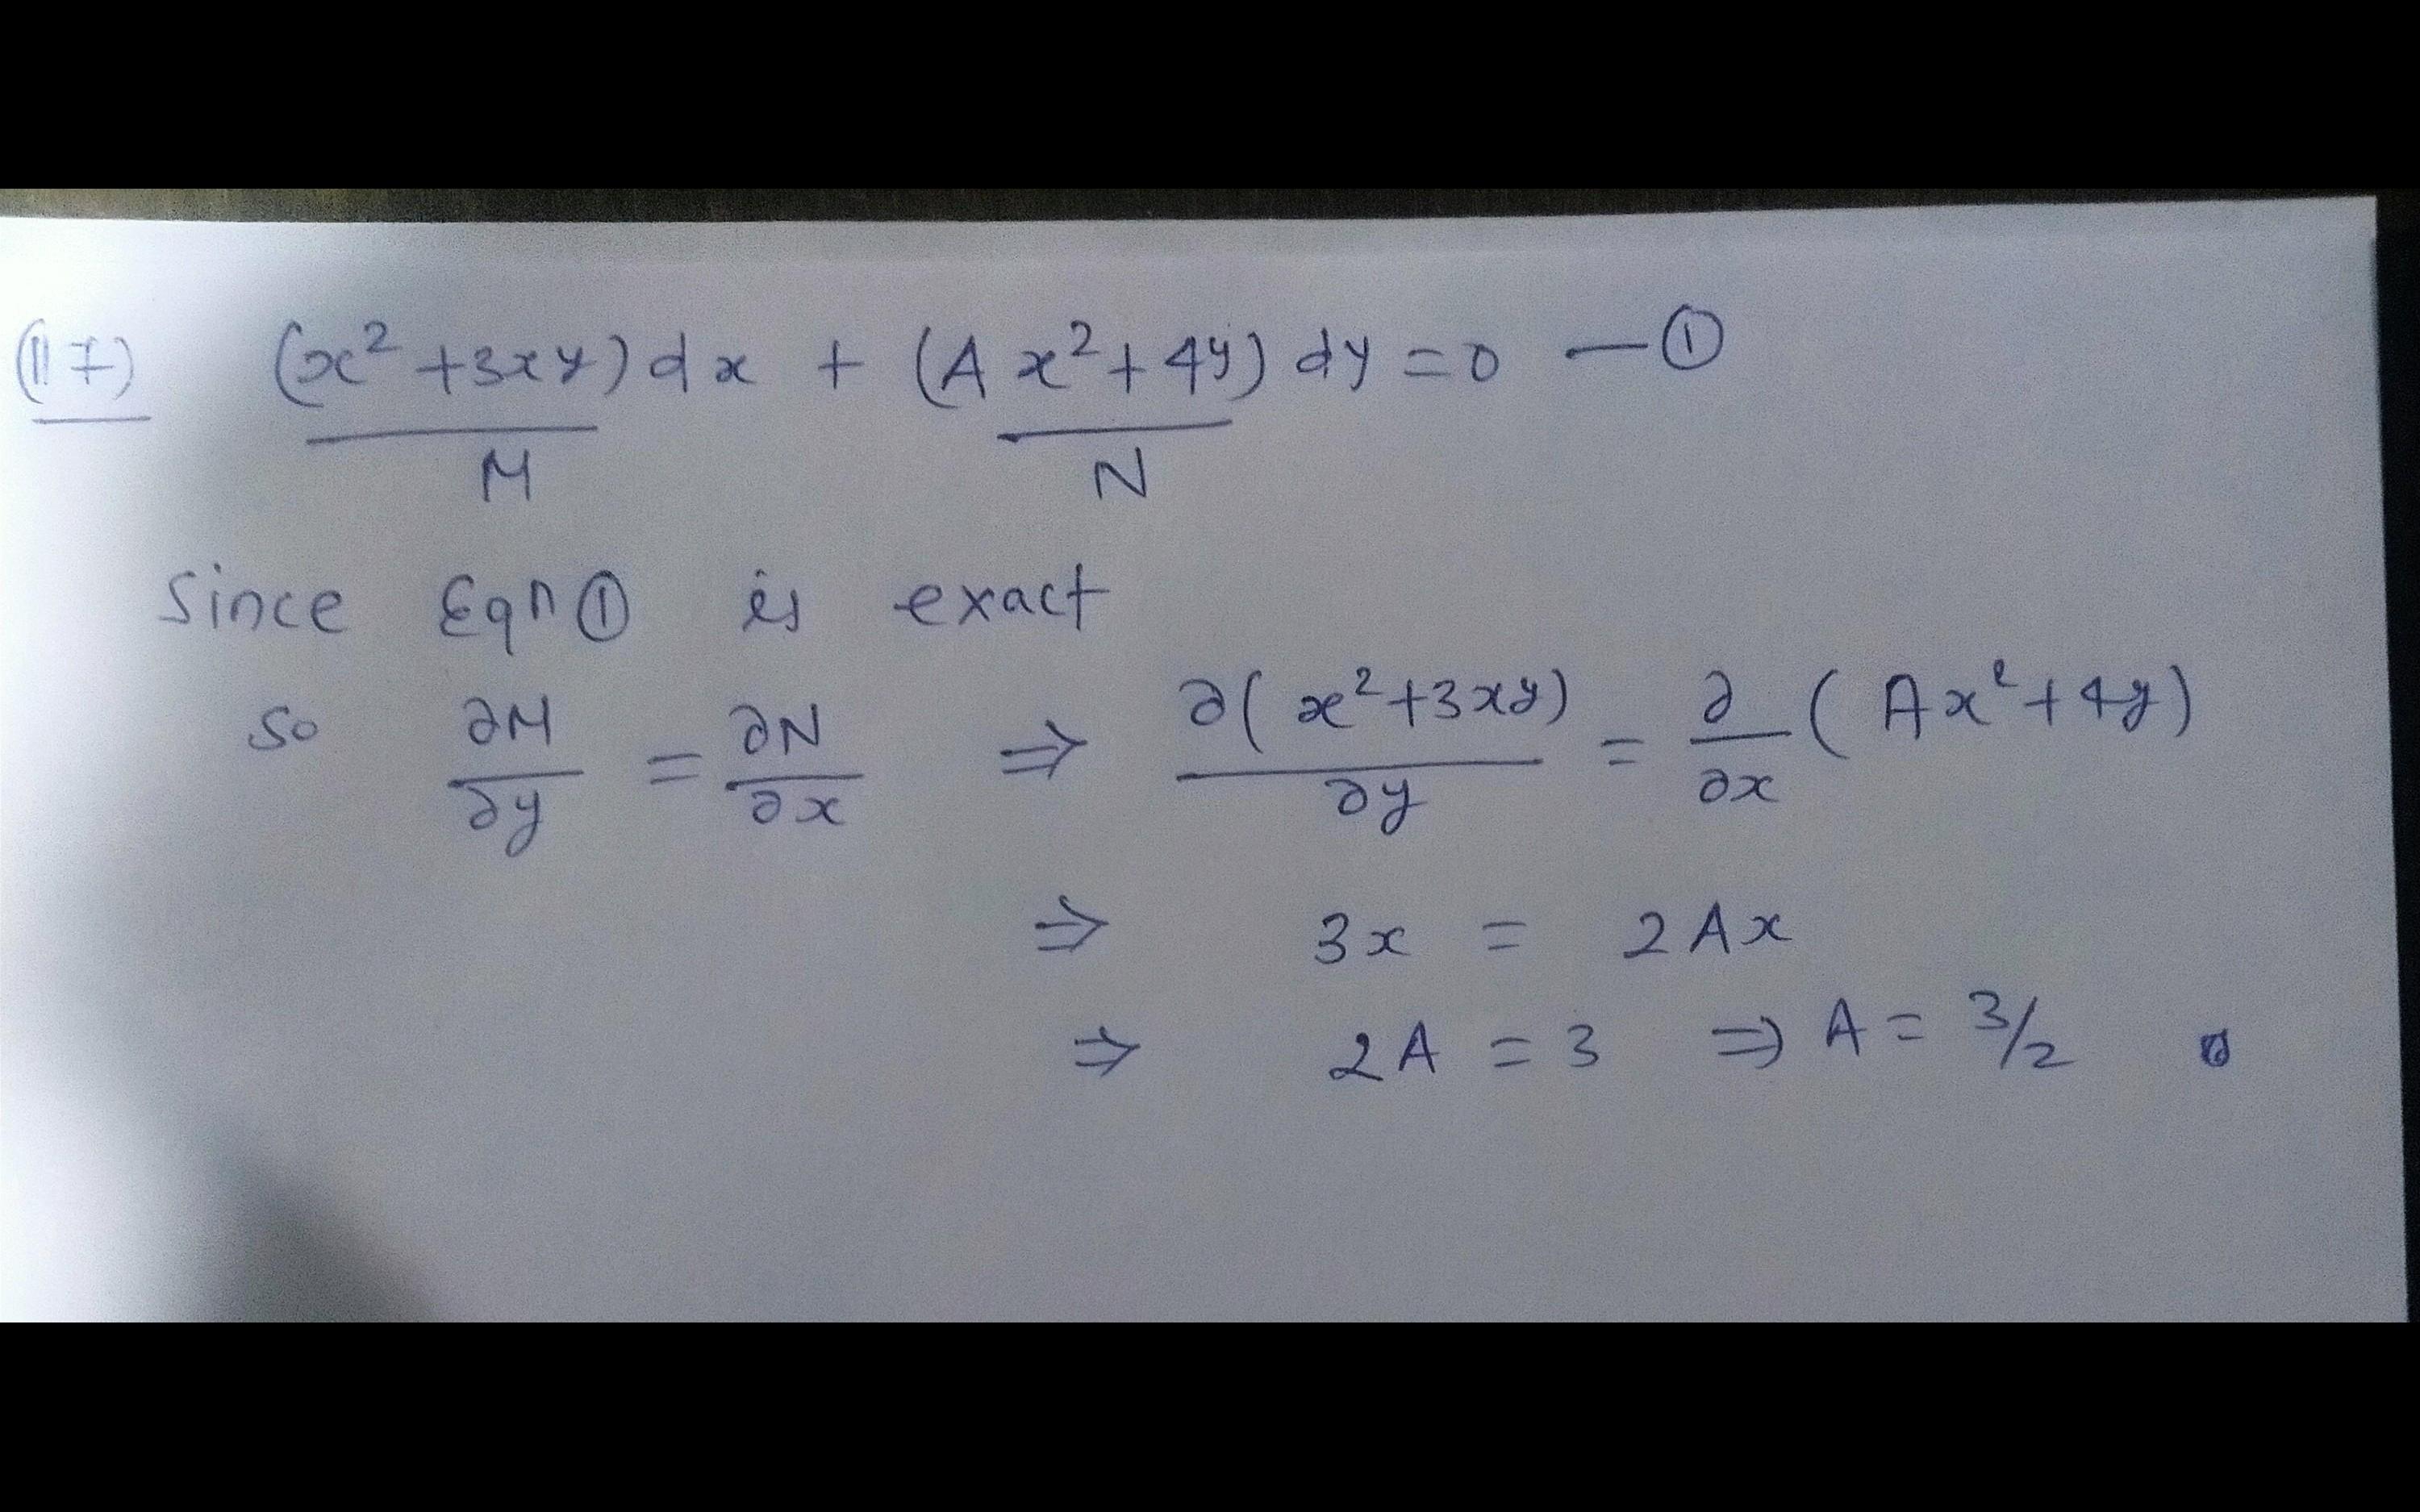 (17) (x² + 3xy) dx + (A x² + 4y) dy = 0 — ①
M N
Since Eqn ① is exact
So ∂M/∂y = ∂N/∂x ⇒ ∂(x² + 3xy)/∂y = ∂/∂x (Ax² + 4y)
⇒ 3x = 2Ax
⇒ 2A = 3 ⇒ A = 3/2